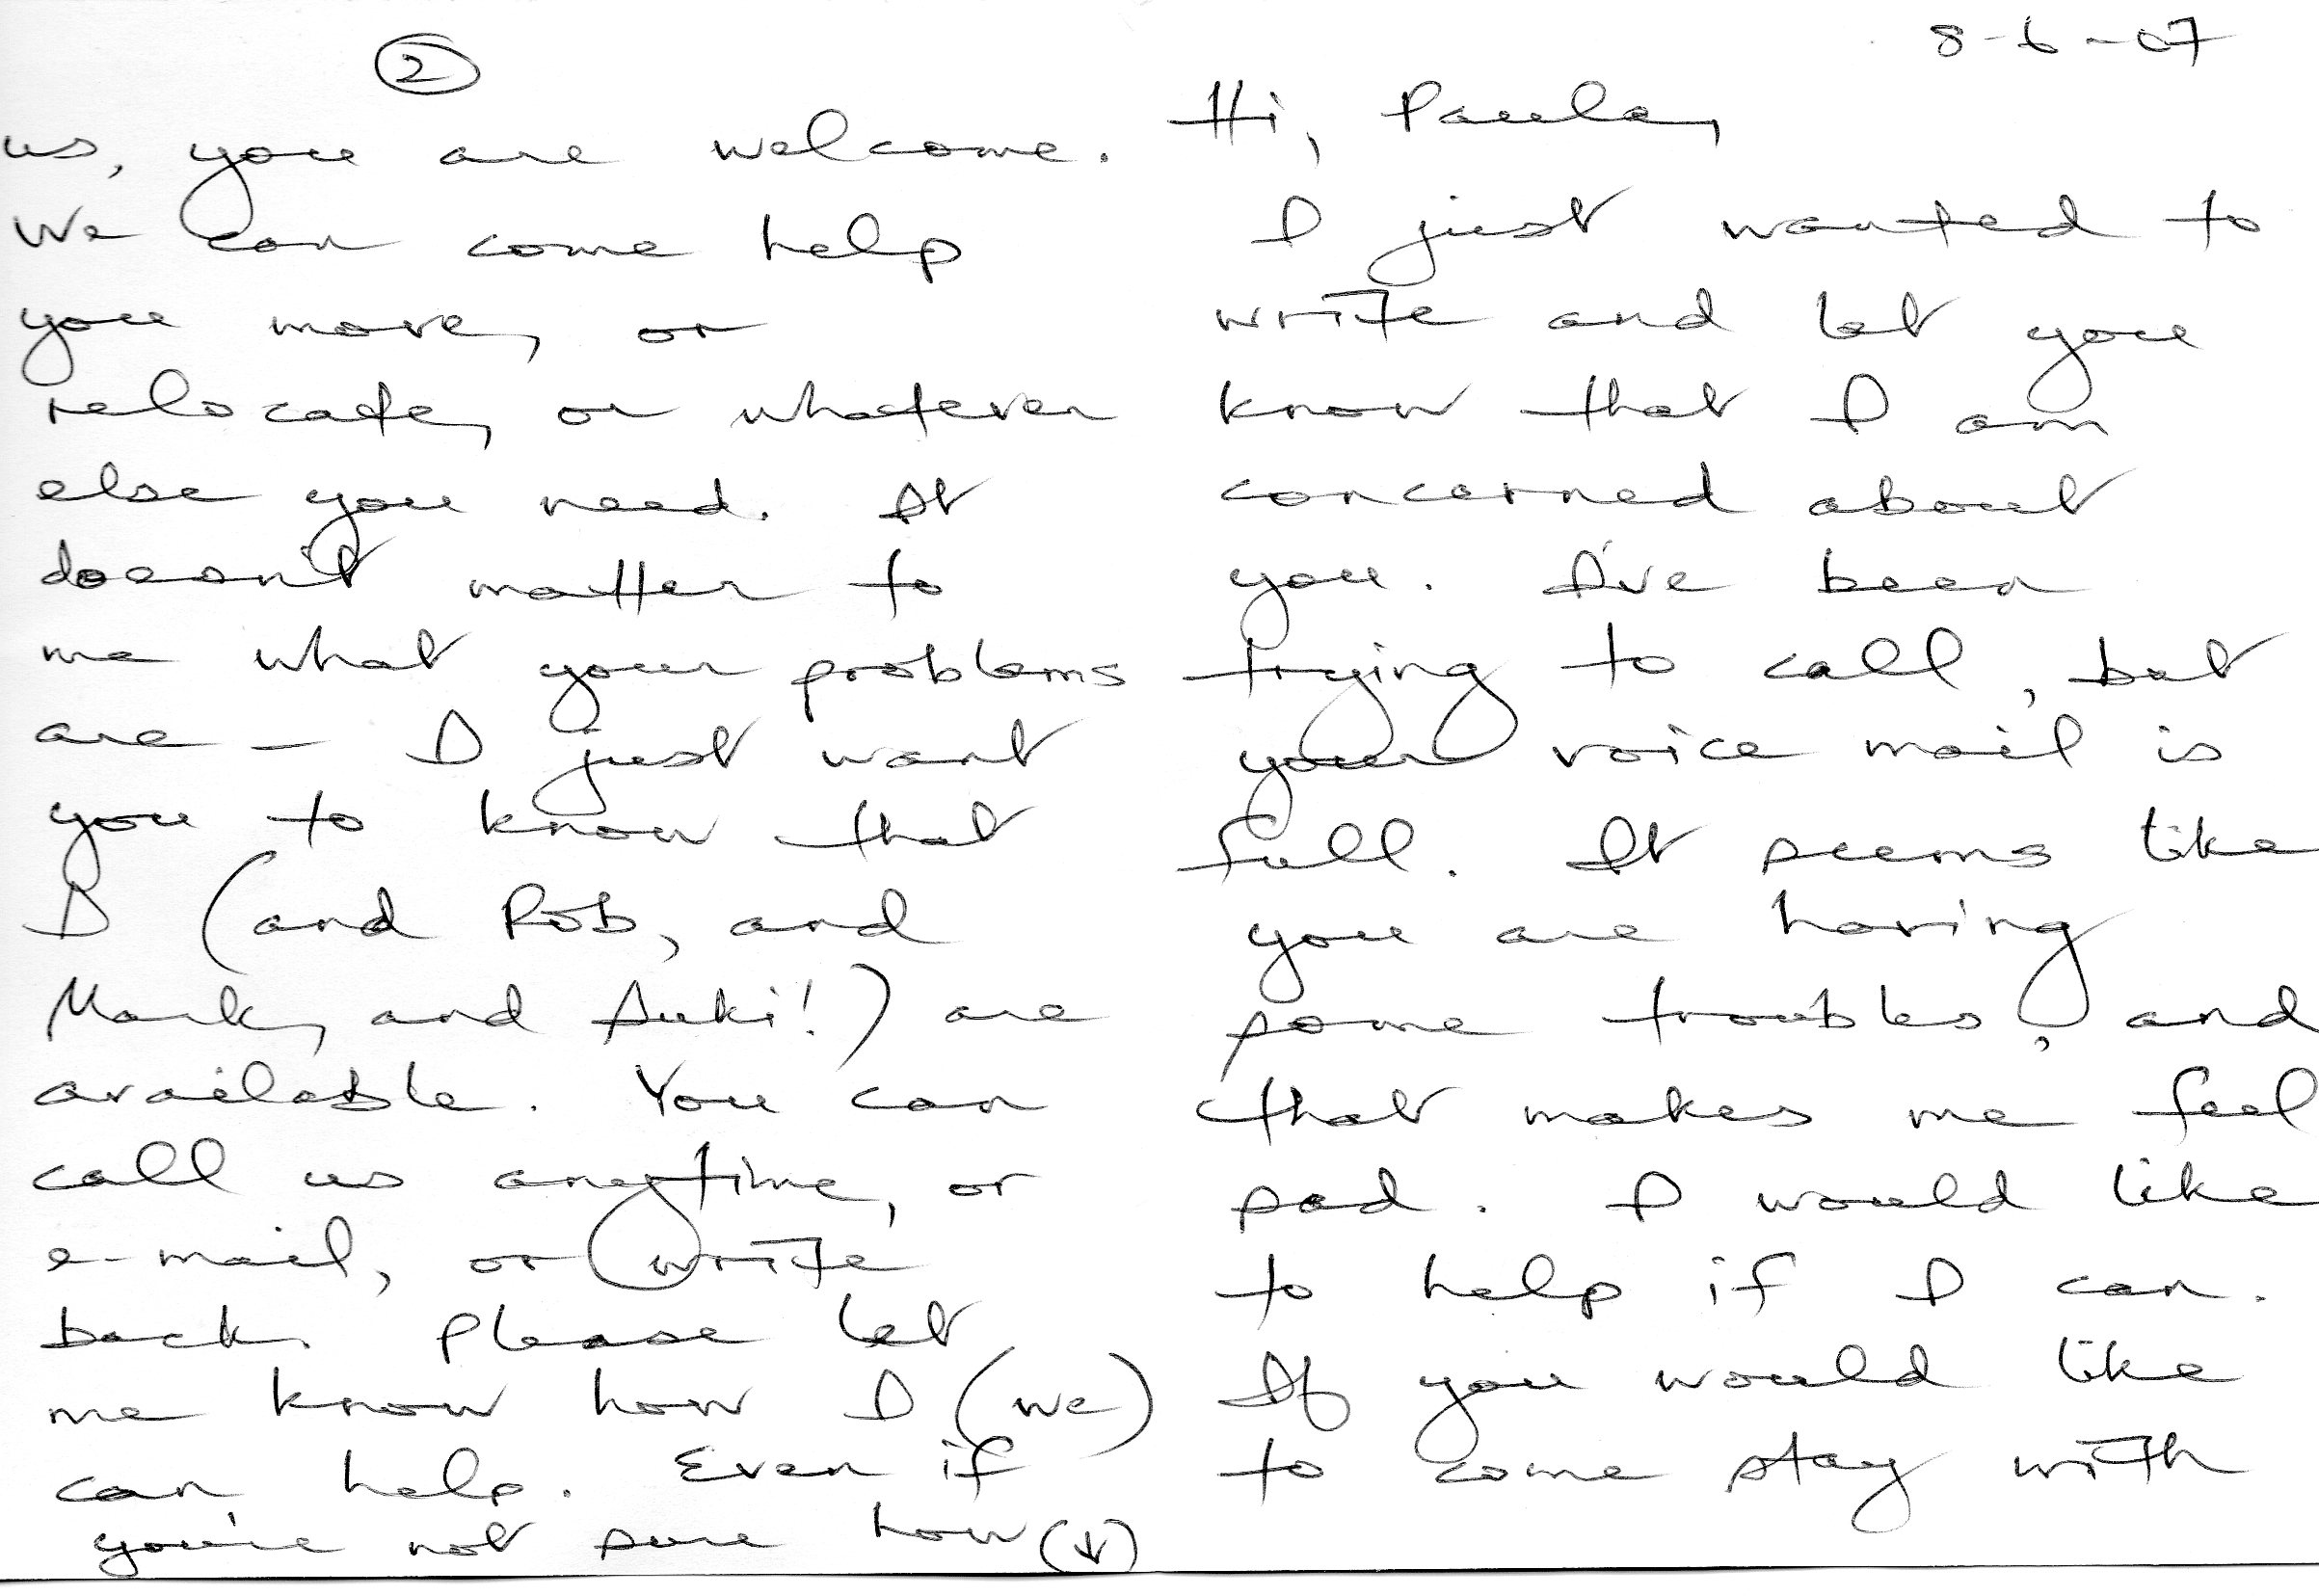 8-6-07
Hi, Paula,
I just wanted to
write and let you
know that I am
concerned about
you. I've been
trying to call, but
your voice mail is
full. It seems like
you are having
some troubles, and
that makes me feel
sad. I would like
to help if I can.
If you would like
to come stay with
2
us, you are welcome.
We can come help
you move, or
relocate, or whatever
else you need. It
doesn't matter to
me what your problems
are - I just want
you to know that
I (and Rob, and
Mark, and Suki!) are
available. You can
call us anytime, or
e-mail, or write
back. Please let
me know how I (we)
can help. Even if
you're not sure how (↓)